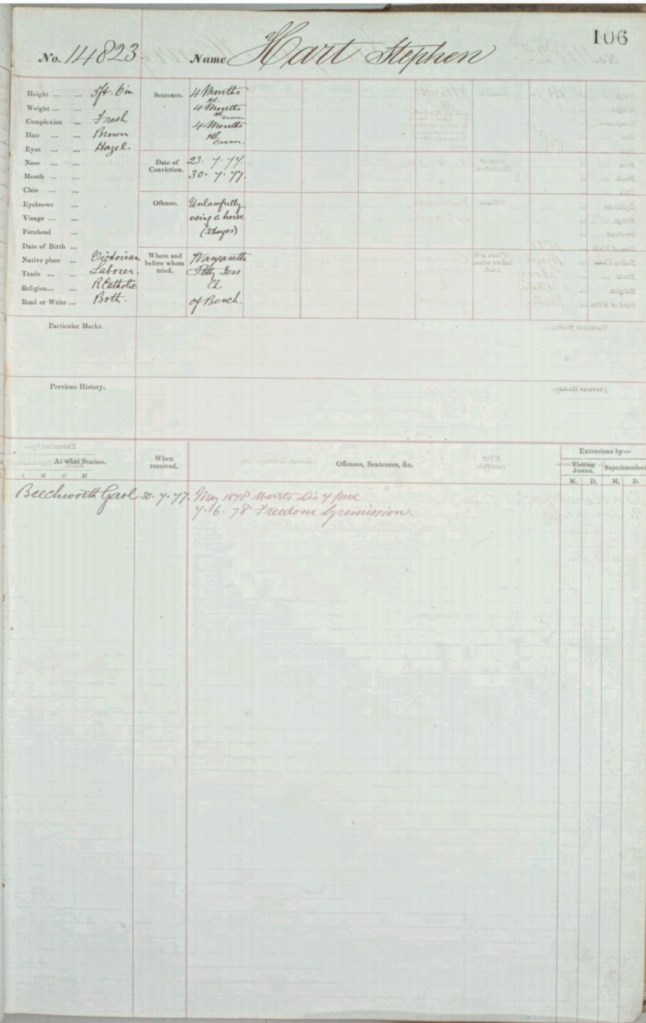 106
No. 14823. Name Hart Stephen
Height ... 5ft. 6in
Weight ...
Complexion ... Fresh
Hair ... Brown
Eyes ... Hazel.
Nose ...
Mouth ...
Chin ...
Eyebrows ...
Visage ...
Forehead ...
Date of Birth ...
Native place ... Victorian
Trade ... Laborer.
Religion... R Catholic
Read or Write ... Both.
Sentence.
4 Months
4 Months
4 Months
Date of
Conviction.
23. 7. 77.
30. 7. 77.
Offence.
Unlawfully
using a horse
Where and
before whom
tried.
Wangaratta
of Bench.
Particular Marks.
Previous History.
At what Station.
When
received.
Offences, Sentences, &c.
Extensions by—
Visiting
Justice.
Superintendent
M. D. M. D.
Beechworth Gaol 30. 7. 77. May 1878
7. 6. 78 Freedom by remission.